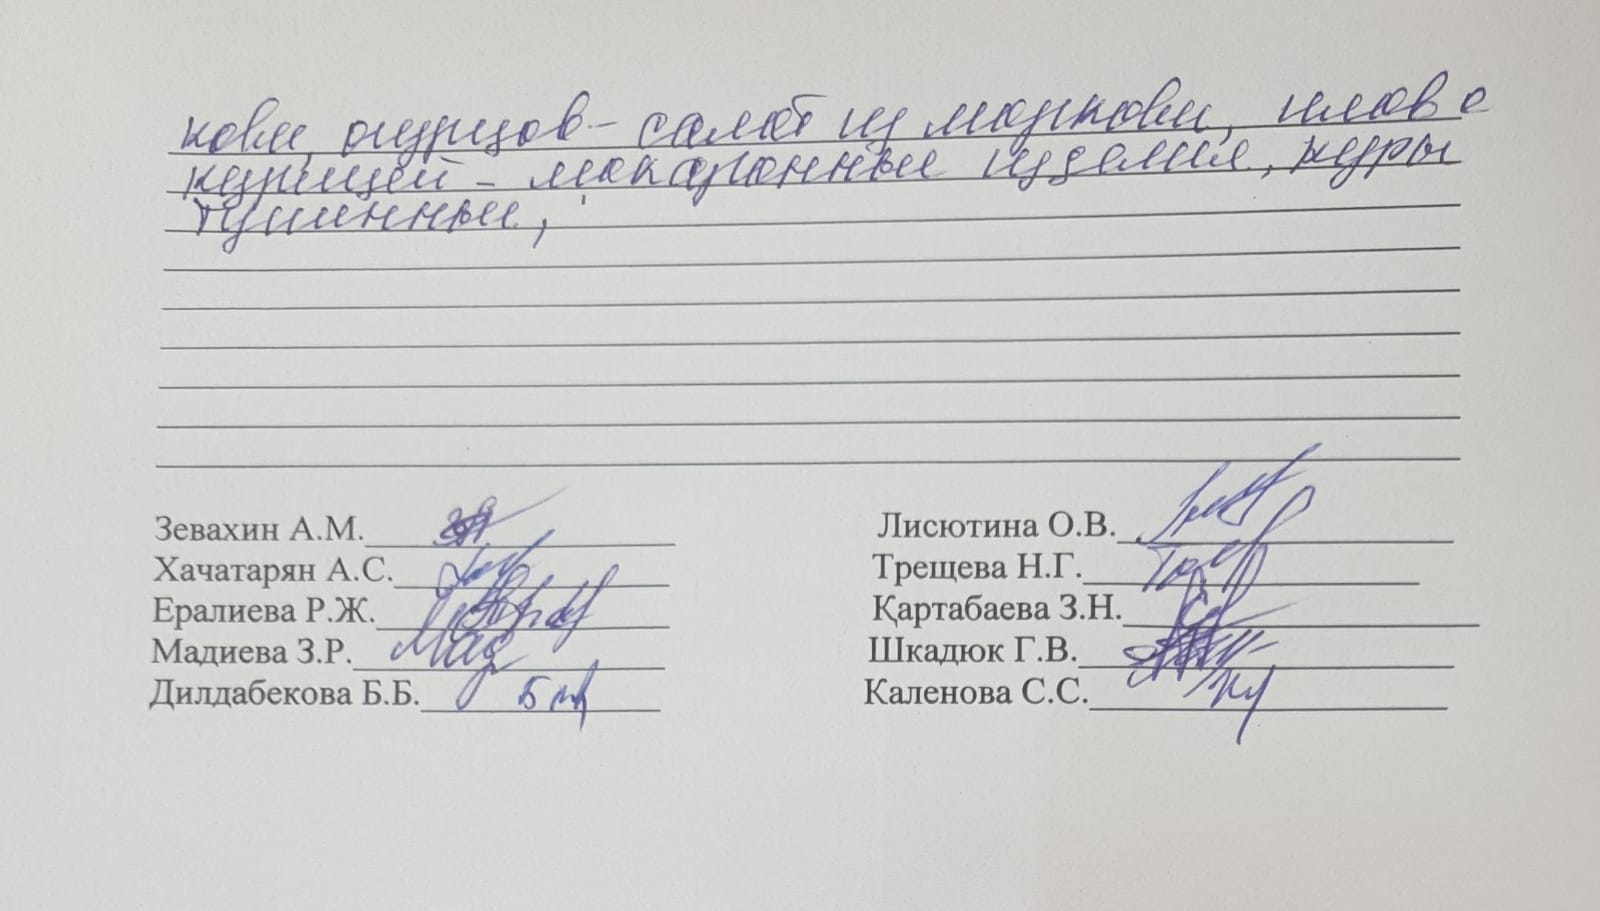 кови, огурцов - салат из моркови, плов с
курицей - макаронные изделия, куры
тушенные,
Зевахин А.М.
Хачатарян А.С.
Ералиева Р.Ж.
Мадиева З.Р.
Дилдабекова Б.Б.
Лисютина О.В.
Трещева Н.Г.
Қартабаева З.Н.
Шкадюк Г.В.
Каленова С.С.